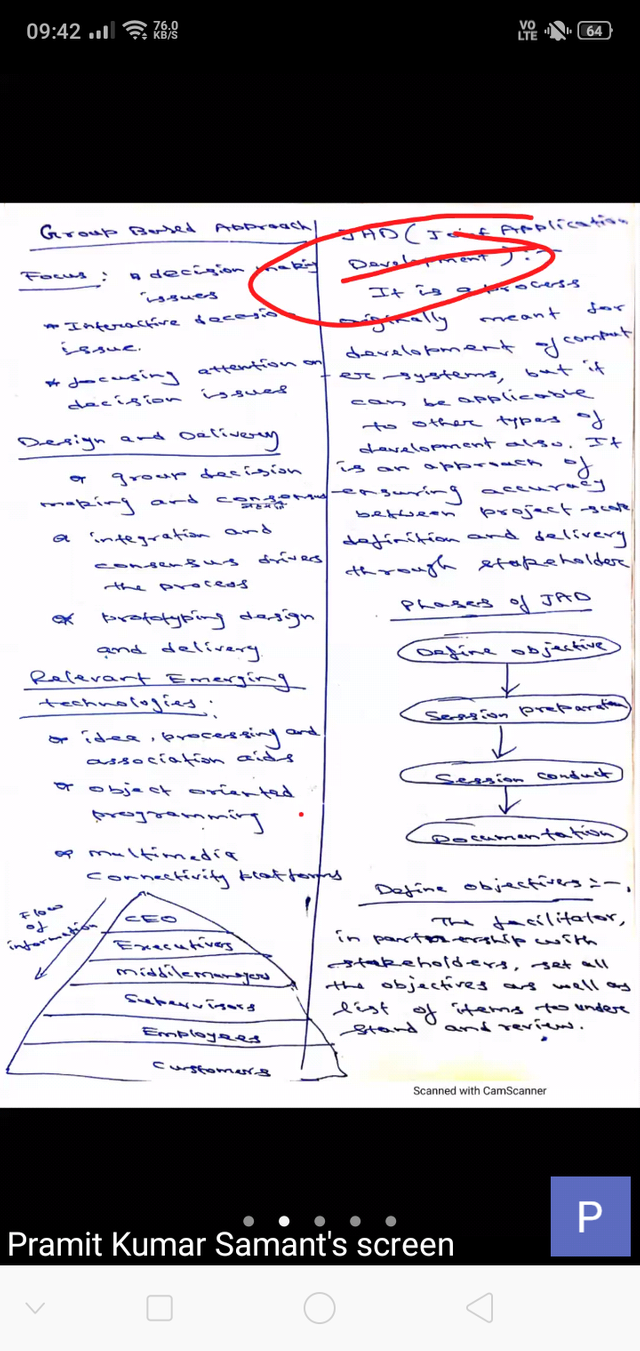 09:42
76.0
KB/S
VO
LTE
64
Group Based Approach
Focus : * decision making
issues
* Interactive decesio
issue.
* focusing attention on
decision issues
Design and Delivery
* group decision
making and consensus
* integration and
consensus drives
the process
* prototyping design
and delivery
Relevant Emerging
technologies :
* idea, processing and
association aids
* object oriented
programming
* multimedia
connectivity platforms
Flow
of
information
CEO
Executives
Middle manager
Supervisors
Employees
Customers
JAD (Joint Application
Development) :-
It is a process
originally meant for
development of comput
-er-systems, but it
can be applicable
to other types of
development also. It
is an approach of
ensuring accuracy
between project-scope
definition and delivery
through stakeholder
Phases of JAD
Define objective
Session preparation
Session conduct
Documentation
Define objectives :-
The facilitator,
in partnership with
stakeholders, set all
the objectives as well as
list of items to under
stand and review.
Scanned with CamScanner
P
Pramit Kumar Samant's screen